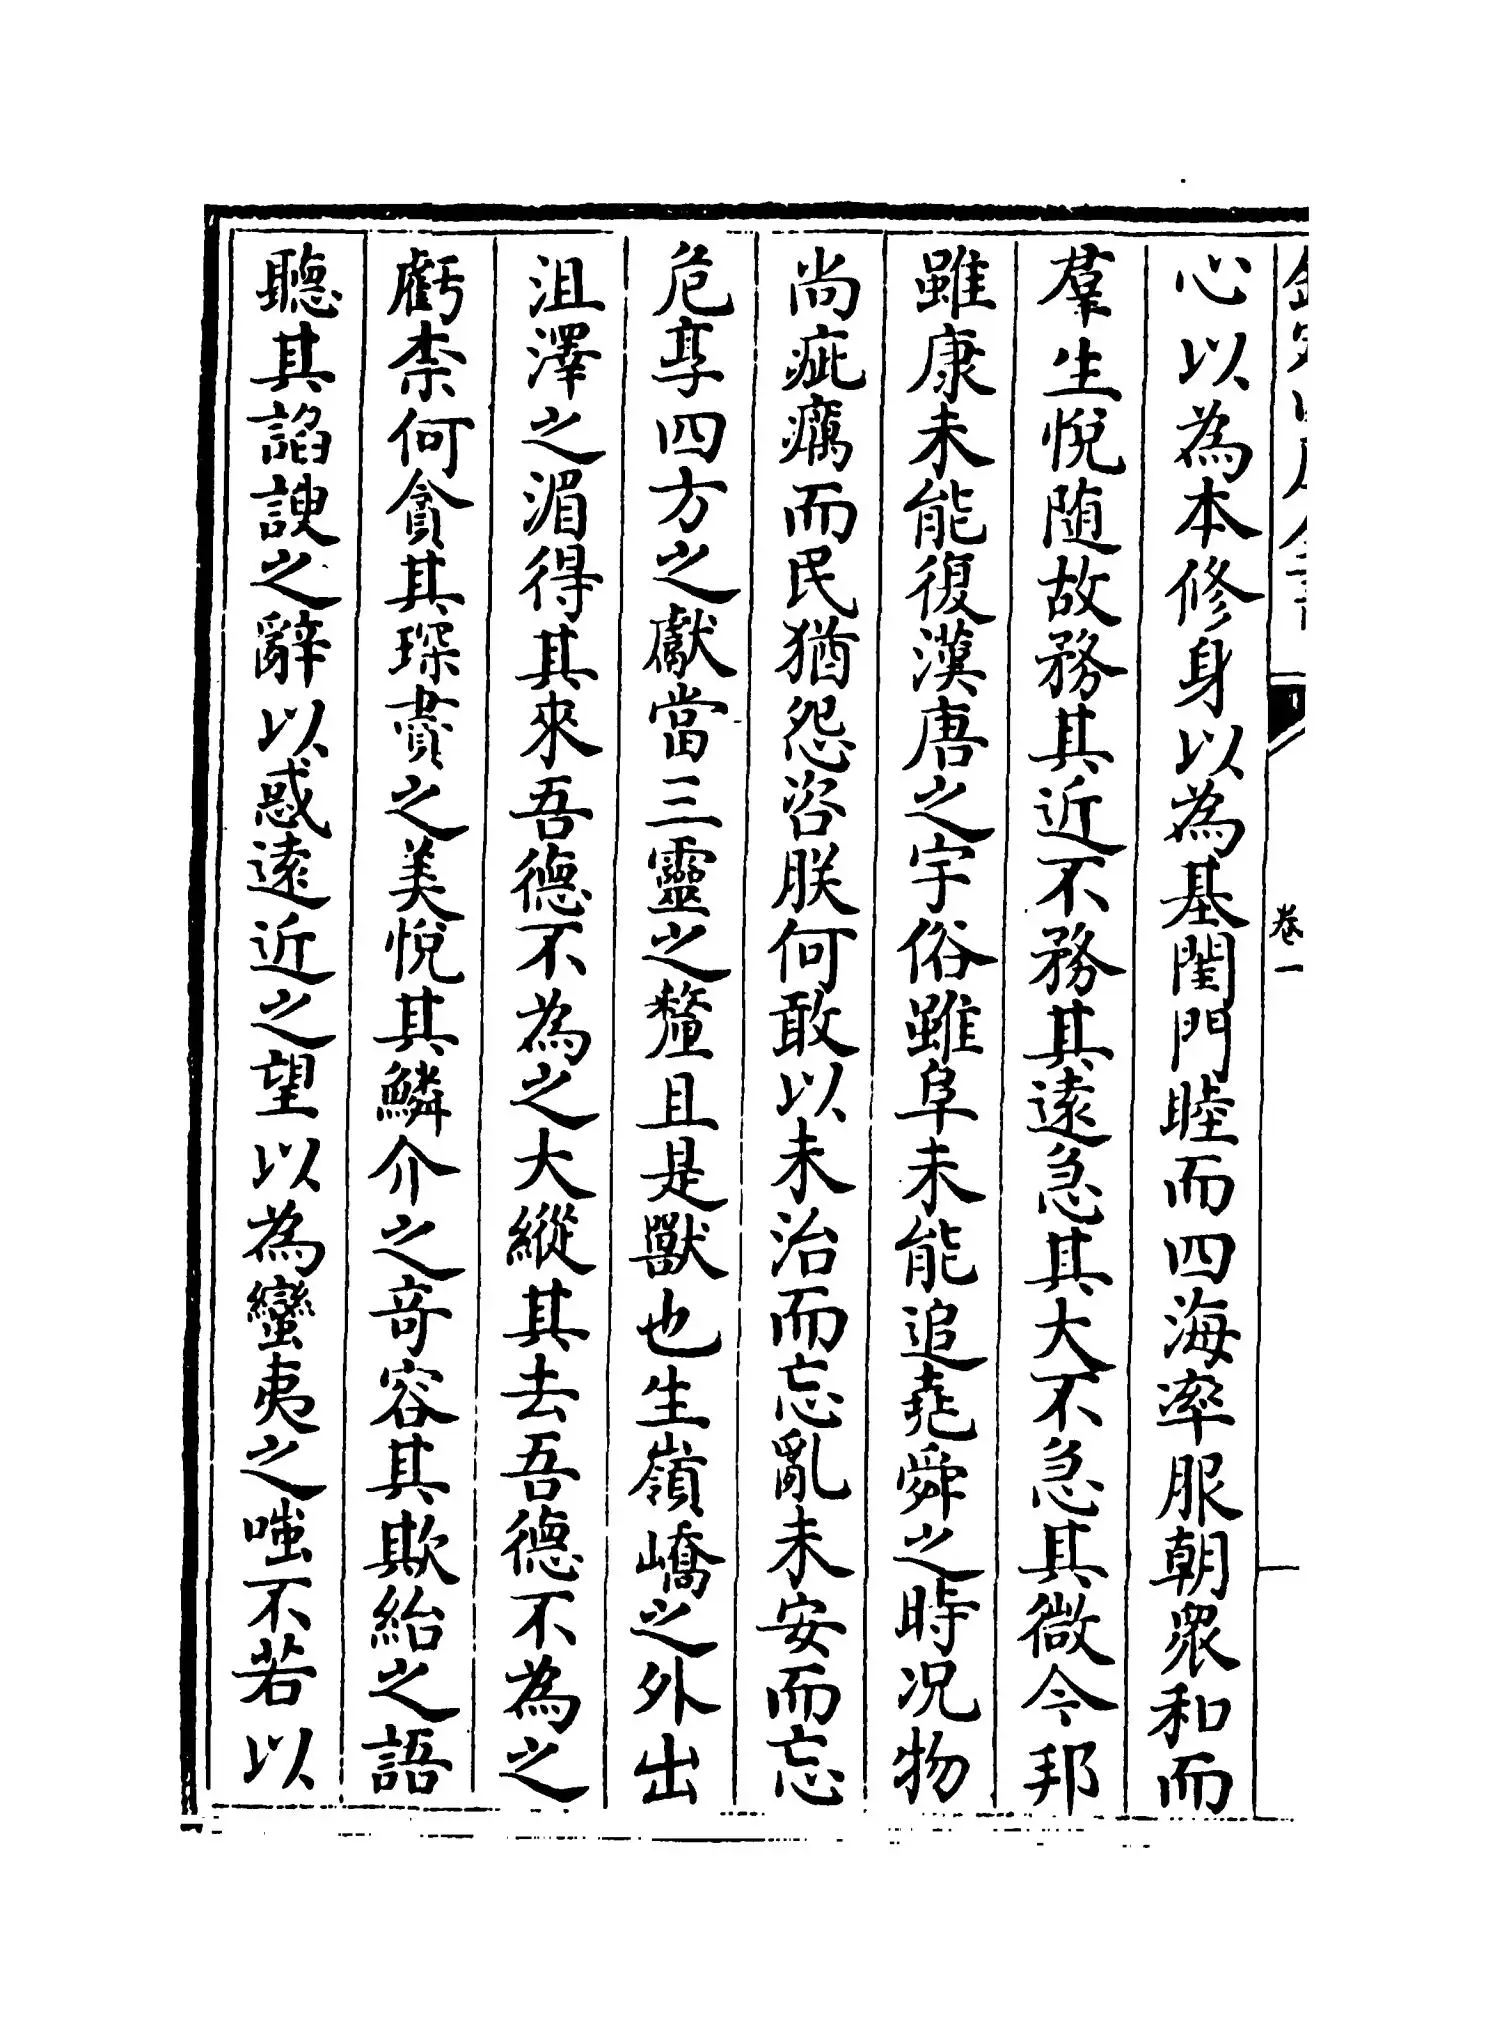 卷一
心以為本修身以為基閨門睦而四海率服朝衆和而
羣生悅随故務其近不務其遠急其大不急其微今邦
雖康未能復漢唐之宇俗雖阜未能追堯舜之時况物
尚疵癘而民猶怨咨朕何敢以未治而忘亂未安而忘
危享四方之獻當三靈之釐且是獸也生嶺嶠之外出
沮澤之湄得其來吾德不為之大縱其去吾德不為之
虧柰何貪其琛賮之美悅其鱗介之竒容其欺紿之語
聽其諂諛之辭以惑遠近之望以為蠻夷之嗤不若以